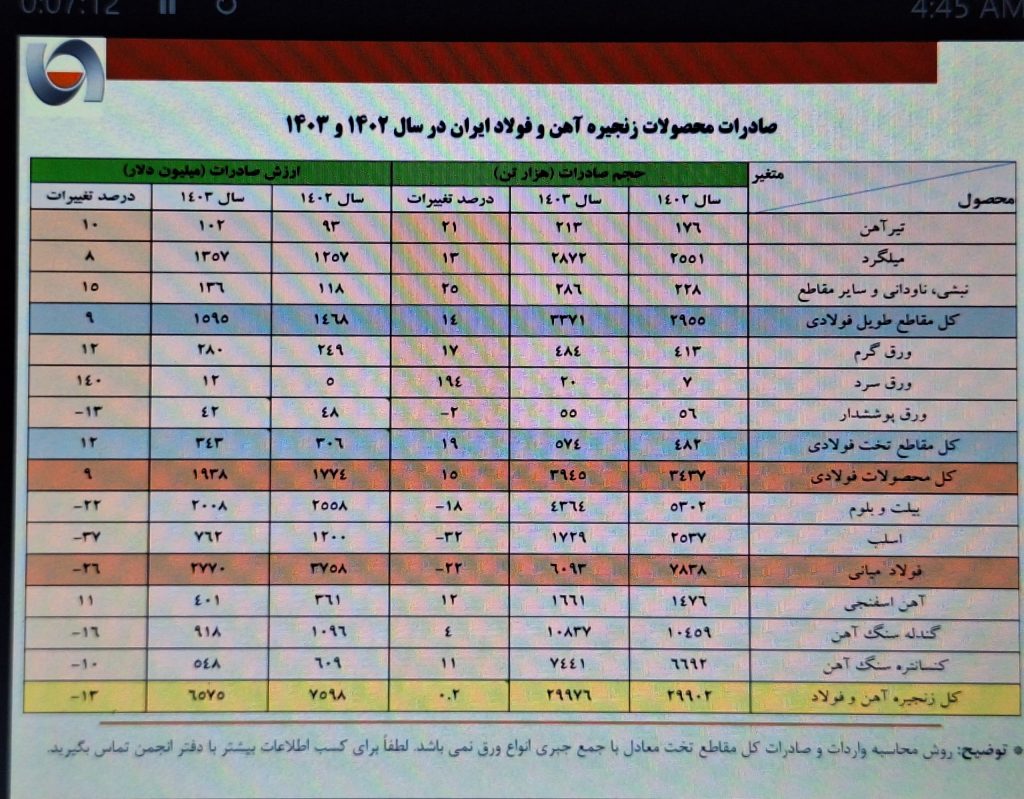 0:07:12
4:45 AM
صادرات محصولات زنجیره آهن و فولاد ایران در سال ۱۴۰۲ و ۱۴۰۳
متغیر حجم صادرات (هزار تن) ارزش صادرات (میلیون دلار)
محصول سال ۱۴۰۲ سال ۱۴۰۳ درصد تغییرات سال ۱۴۰۲ سال ۱۴۰۳ درصد تغییرات
تیرآهن ۱۷۶ ۲۱۳ ۲۱ ۹۳ ۱۰۲ ۱۰
میلگرد ۲۵۵۱ ۲۸۷۲ ۱۳ ۱۲۵۷ ۱۳۵۷ ۸
نبشی، ناودانی و سایر مقاطع ۲۲۸ ۲۸۶ ۲۵ ۱۱۸ ۱۳۶ ۱۵
کل مقاطع طویل فولادی ۲۹۵۵ ۳۳۷۱ ۱۴ ۱۴۶۸ ۱۵۹۵ ۹
ورق گرم ۴۱۳ ۴۸۴ ۱۷ ۲۴۹ ۲۸۰ ۱۲
ورق سرد ۷ ۲۰ ۱۹۴ ۵ ۱۲ ۱۴۰
ورق پوششدار ۵۶ ۵۵ -۲ ۴۸ ۴۲ -۱۳
کل مقاطع تخت فولادی ۴۸۲ ۵۷۴ ۱۹ ۳۰۶ ۳۴۳ ۱۲
کل محصولات فولادی ۳۴۳۷ ۳۹۴۵ ۱۵ ۱۷۷۴ ۱۹۳۸ ۹
بیلت و بلوم ۵۳۰۲ ۴۳۶۴ -۱۸ ۲۵۵۸ ۲۰۰۸ -۲۲
اسلب ۲۵۳۷ ۱۷۲۹ -۳۲ ۱۲۰۰ ۷۶۲ -۳۷
فولاد میانی ۷۸۳۸ ۶۰۹۳ -۲۲ ۳۷۵۸ ۲۷۷۰ -۲۶
آهن اسفنجی ۱۴۷۶ ۱۶۶۱ ۱۲ ۳۶۱ ۴۰۱ ۱۱
گندله سنگ آهن ۱۰۴۵۹ ۱۰۸۳۷ ۴ ۱۰۹۶ ۹۱۸ -۱۶
کنسانتره سنگ آهن ۶۶۹۲ ۷۴۴۱ ۱۱ ۶۰۹ ۵۴۸ -۱۰
کل زنجیره آهن و فولاد ۲۹۹۰۲ ۲۹۹۷۶ ۰.۲ ۷۵۹۸ ۶۵۷۵ -۱۳
توضیح: روش محاسبه واردات و صادرات کل مقاطع تخت معادل با جمع جبری انواع ورق نمی باشد. لطفاً برای کسب اطلاعات بیشتر با دفتر انجمن تماس بگیرید.